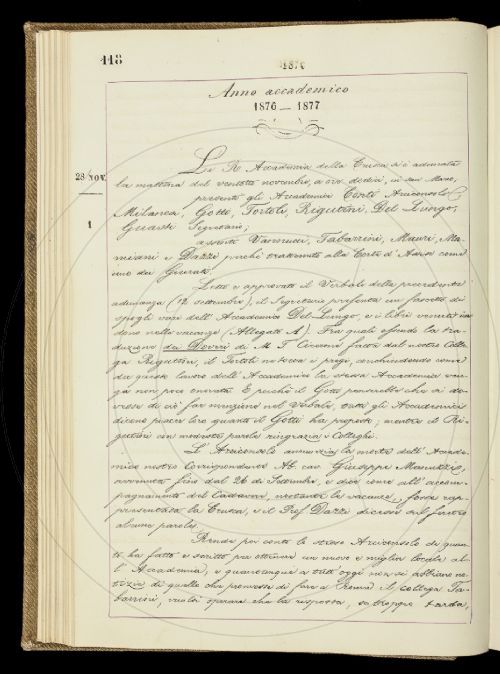 448
1876
Anno accademico
1876 — 1877
28 NOV.
1
La R. Accademia della Crusca si è adunata
la mattina del ventotto novembre, a ore dodici, in San Marco,
presenti gli Accademici Conti Arciconsolo,
Milanesi, Gotti, Tortoli, Rigutini, Del Lungo,
Guasti Segretario;
assenti Vannucci, Tabarrini, Mauri, Ma-
miani e Dazzi perchè trattenuto alla Corte d'Assise come
uno dei Giurati.
Letto e approvato il Verbale della precedente
adunanza (12 settembre), il Segretario presenta un fascetto di
spogli voci dell'Accademico Del Lungo, e i libri venuti in
dono nelle vacanze (Allegato A). Tra quali essendo la tra-
duzione dei Doveri di M. T. Cicerone fatta dal nostro Colle-
ga Rigutini, il Tortoli ne tocca i pregi, conchiudendo come
da questo lavoro dell'Accademico la stessa Accademia ven-
ga non poco onorata. E perchè il Gotti penserebbe che si do-
vesse di ciò far menzione nel Verbale, tutti gli Accademici
dicono piacer loro quanto il Gotti ha proposto, mentre il Ri-
gutini con modeste parole ringrazia i Colleghi.
L'Arciconsolo annunzia la morte dell'Accade-
mico nostro Corrispondente Ab. cav. Giuseppe Manuzzi,
avvenuta fino dal 26 di Settembre, e dice come all'accom-
pagnamento del Cadavere, nonostante le vacanze, fosse rap-
presentata la Crusca, e il Prof. Dazzi dicesse sul feretro
alcune parole.
Rende poi conto lo stesso Arciconsolo di quan-
to ha fatto e scritto per ottenere un nuovo e miglior locale al-
l'Accademia, e quantunque a tutt'oggi non si abbiano no-
tizie di quello che promesse di fare a Roma il collega Ta-
barrini, vuole sperare che la risposta, se troppo tarda,